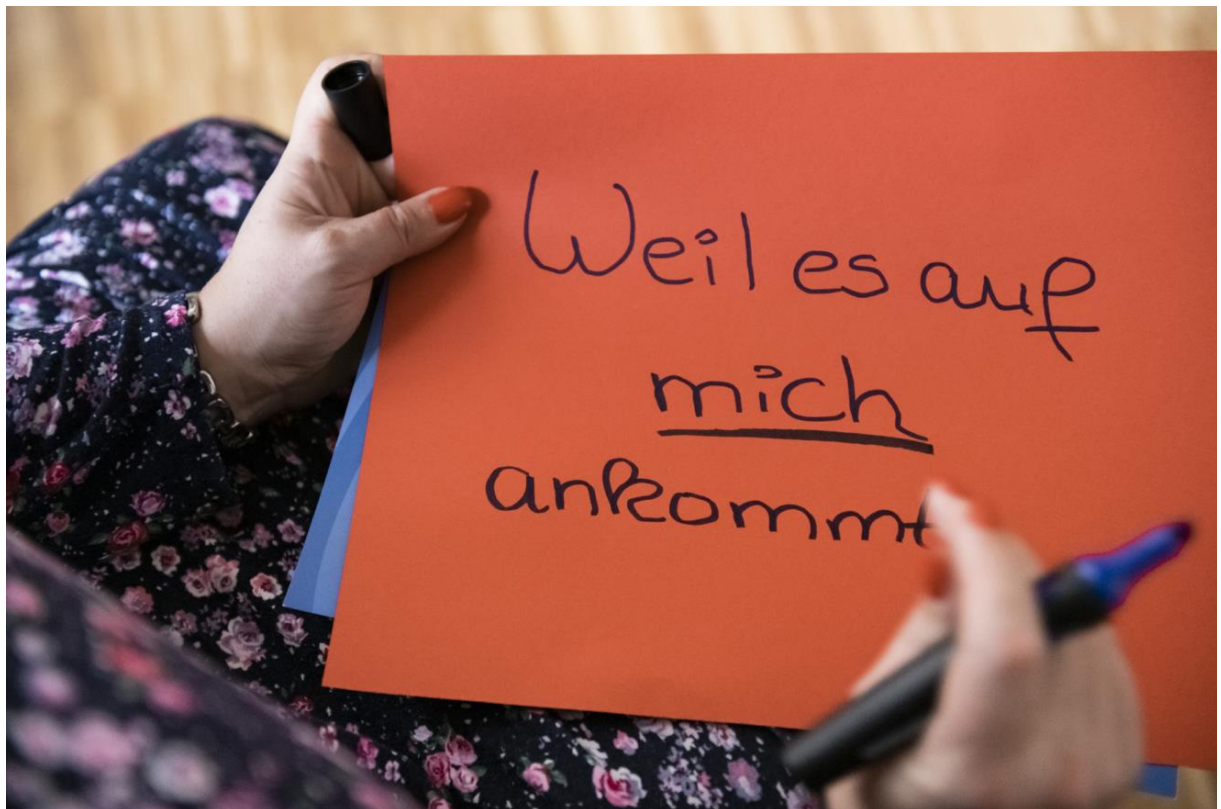 Weil es auf
mich
ankommt